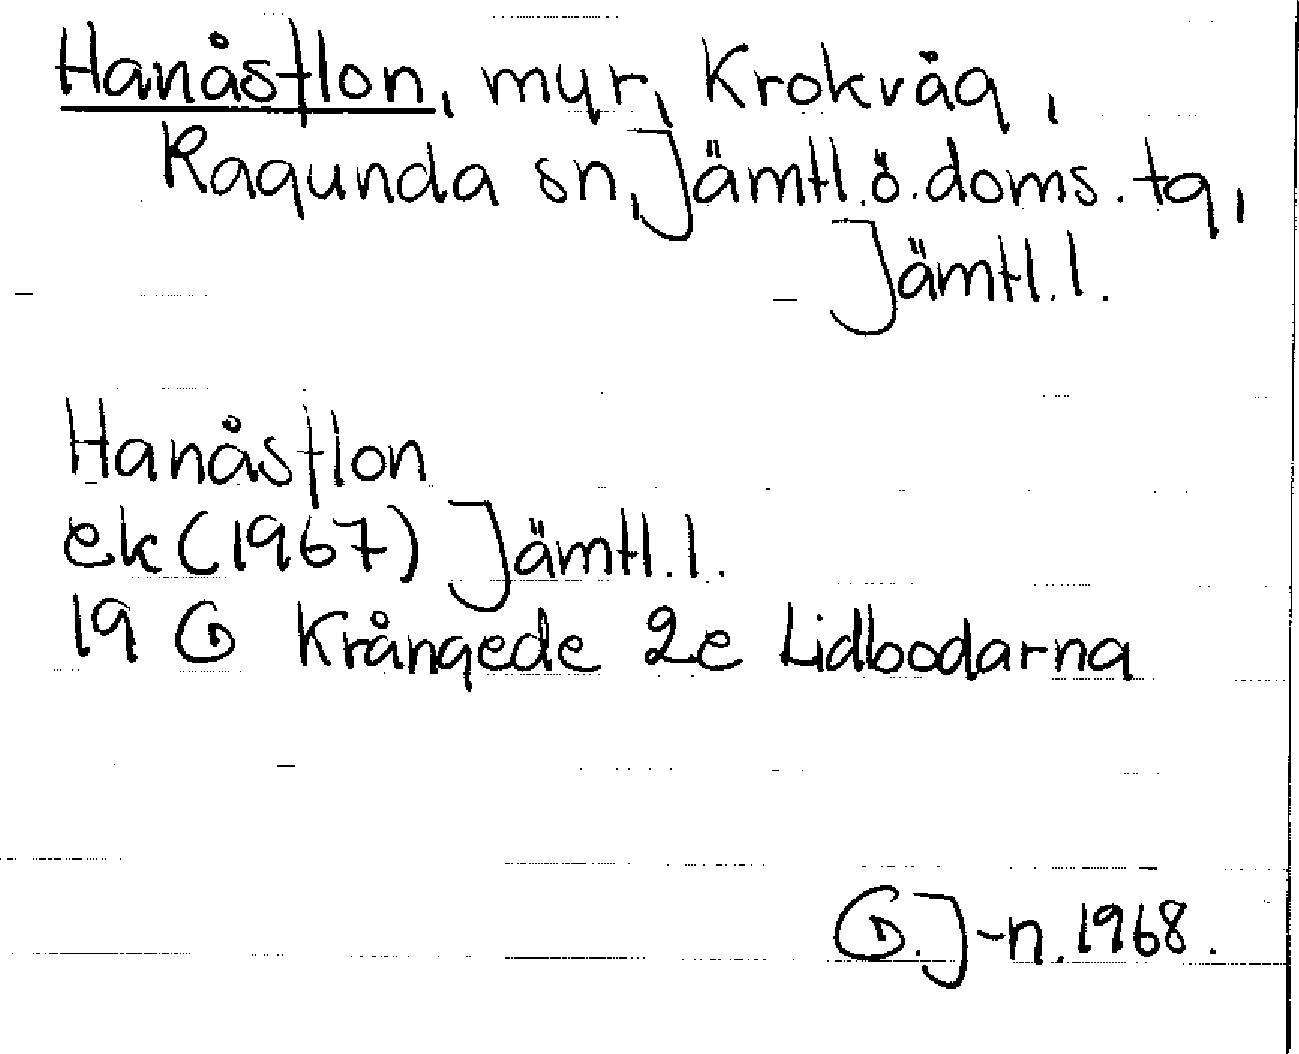 Hanåsflon, myr, Krokvåg,
Ragunda sn, Jämtl.ö.doms.tg,
Jämtl.l.
Hanåsflon
ek (1967) Jämtl.l.
19 G Krångede 2e Lidbodarna
G.J-n. 1968.